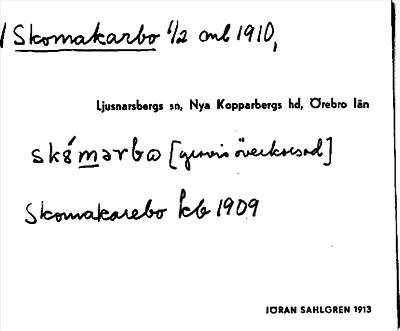 Skomakarbo 1/2 omb 1910,
Ljusnarsbergs sn, Nya Kopparbergs hd, Örebro län
skómarbo [genvis överkorsad]
Skomakarebo kb 1909
JÖRAN SAHLGREN 1913